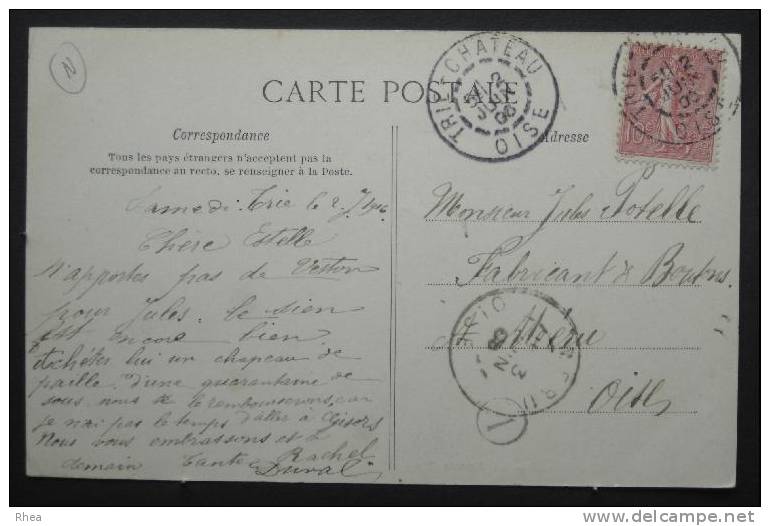 N
CARTE POSTALE
TRIE-CHATEAU
OISE
10
Correspondance
Adresse
Tous les pays étrangers n'acceptent pas la
correspondance au recto, se renseigner à la Poste.
Samedi. Trie le 2
Chère Estelle
N'apportes pas de Veston
pour Jules. le sien
est encore bien.
Achètes lui un chapeau de
paille d'une quarantaine de
sous, nous te le rembourserons, car
je n'ai pas le temps d'aller à Gisors
Nous vous embrassons et à
demain Tante Rachel
Duval
Monsieur Jules Potelle
Fabricant de Boutons.
à Méru
Oise
1
Rhea
www.delcampe.net